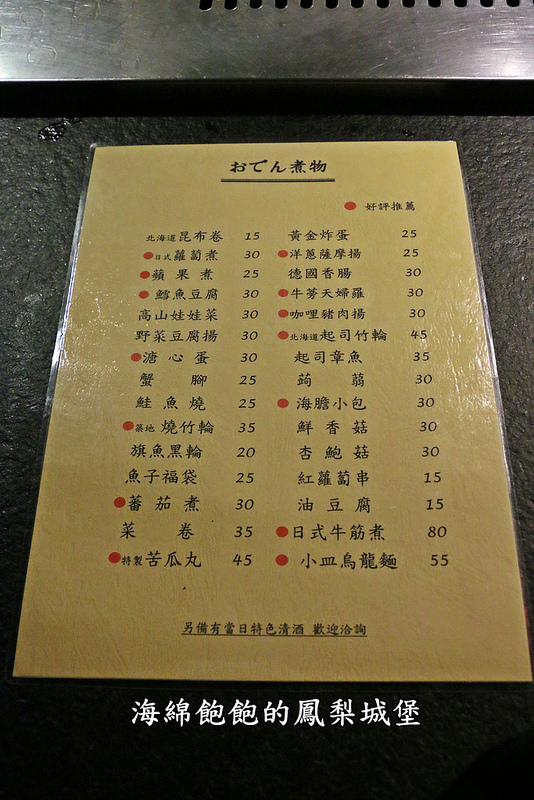 おでん煮物
● 好評推薦
北海道昆布卷 15
●日式蘿蔔煮 30
●蘋果煮 25
●鱈魚豆腐 30
高山娃娃菜 30
野菜豆腐揚 30
●溏心蛋 30
蟹腳 25
鮭魚燒 25
●築地燒竹輪 35
旗魚黑輪 20
魚子福袋 25
●蕃茄煮 30
菜卷 35
●特製苦瓜丸 45
黃金炸蛋 25
●洋蔥薩摩揚 25
德國香腸 30
●牛蒡天婦羅 30
●咖哩豬肉揚 30
●北海道起司竹輪 45
起司章魚 35
蒟蒻 30
●海膽小包 30
鮮香菇 30
杏鮑菇 30
紅蘿蔔串 15
油豆腐 15
●日式牛筋煮 80
●小皿烏龍麵 55
另備有當日特色清酒 歡迎洽詢
海綿飽飽的鳳梨城堡